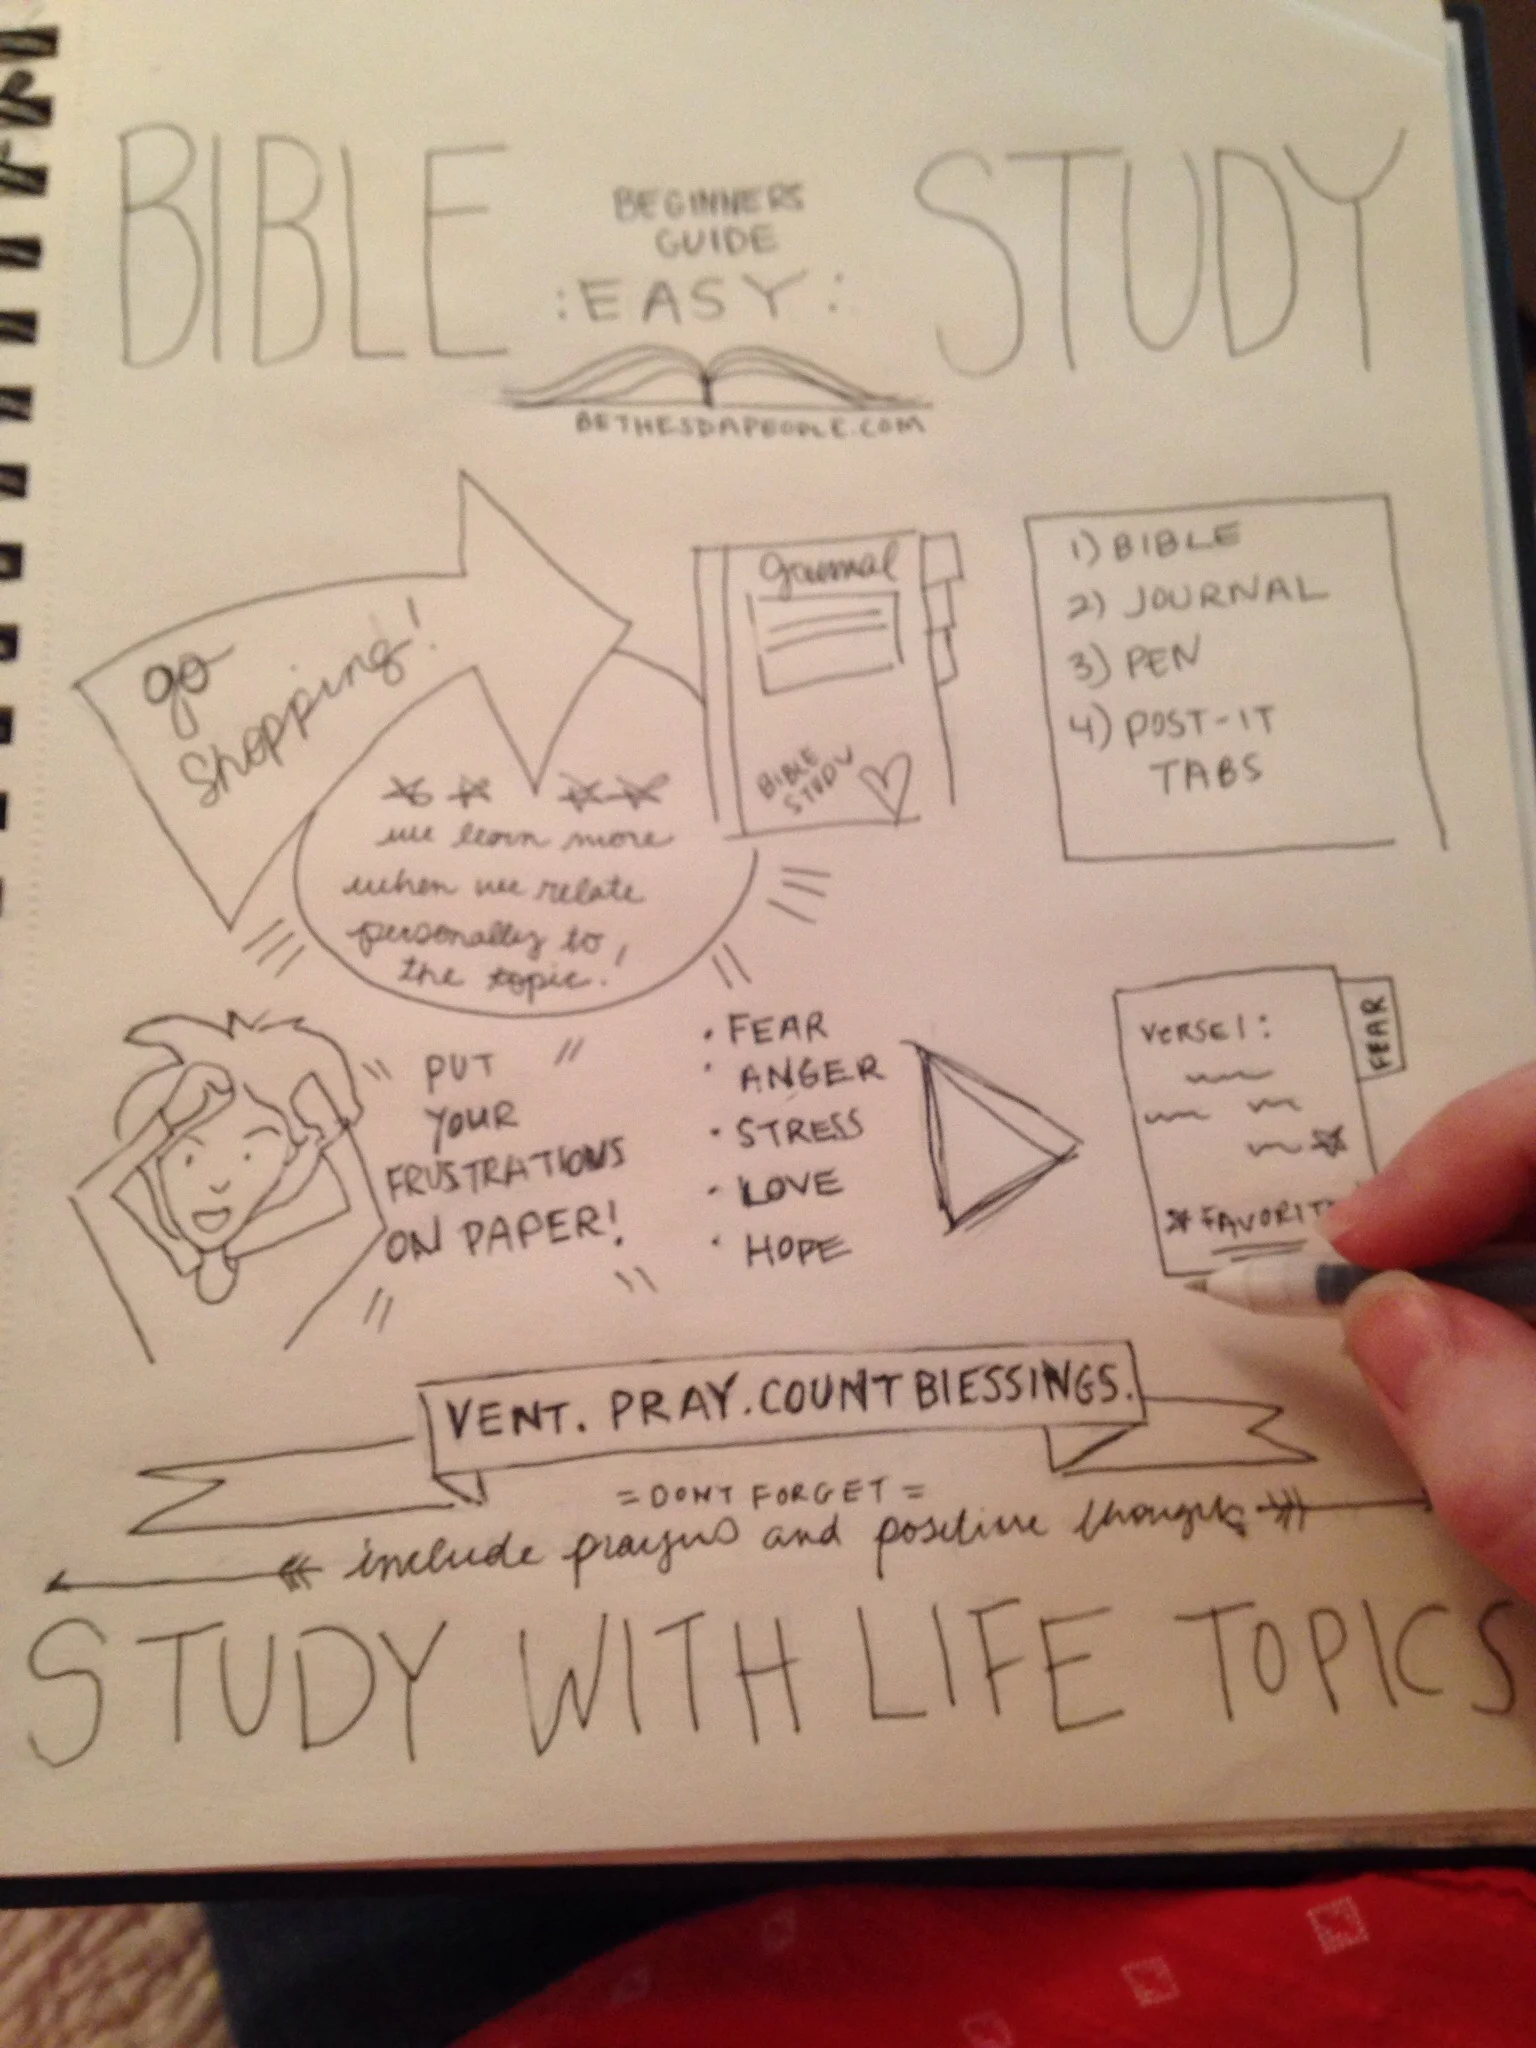 BIBLE
BEGINNERS
GUIDE
:EASY:
STUDY
BETHESDAPEOPLE.COM
go
shopping!
Journal
BIBLE
STUDY
1) BIBLE
2) JOURNAL
3) PEN
4) POST-IT
TABS
we learn more
when we relate
personally to
the topic!
PUT
YOUR
FRUSTRATIONS
ON PAPER!
• FEAR
• ANGER
• STRESS
• LOVE
• HOPE
VERSE 1:
FEAR
*FAVORIT
VENT. PRAY. COUNT BLESSINGS.
= DONT FORGET =
include prayers and positive thoughts
STUDY WITH LIFE TOPICS